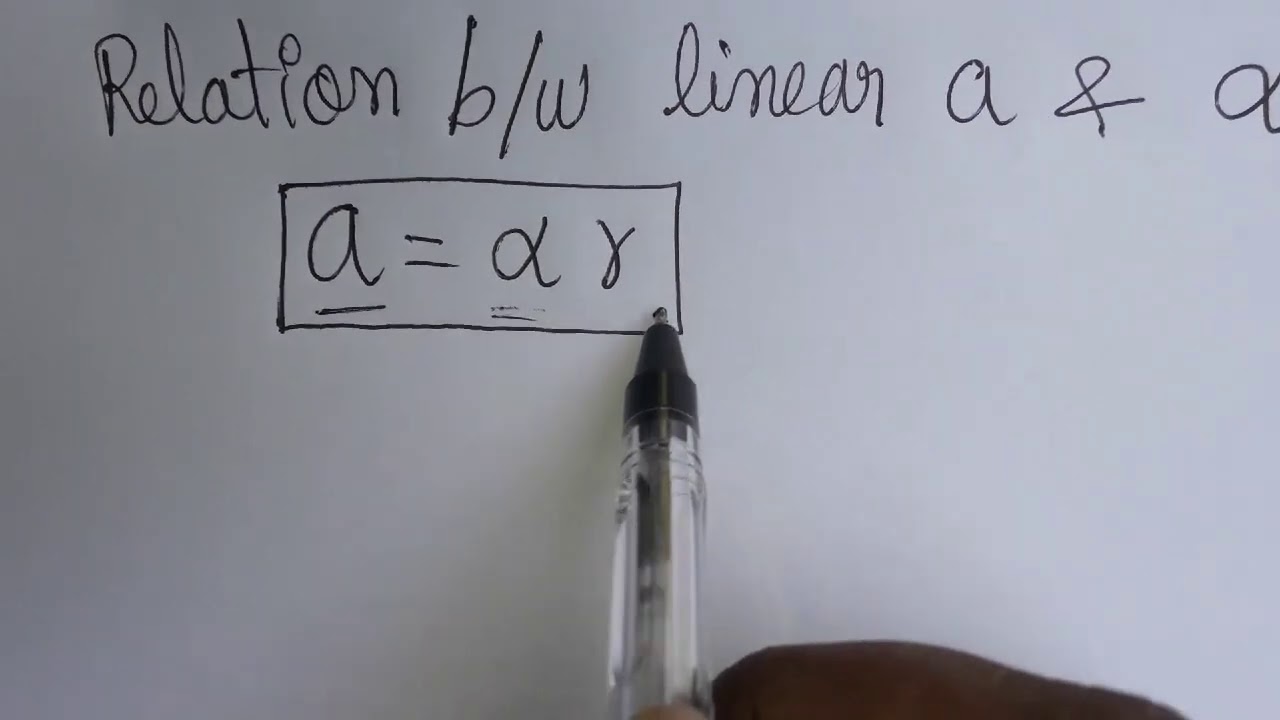 Relation b/w linear a & α
a = α r